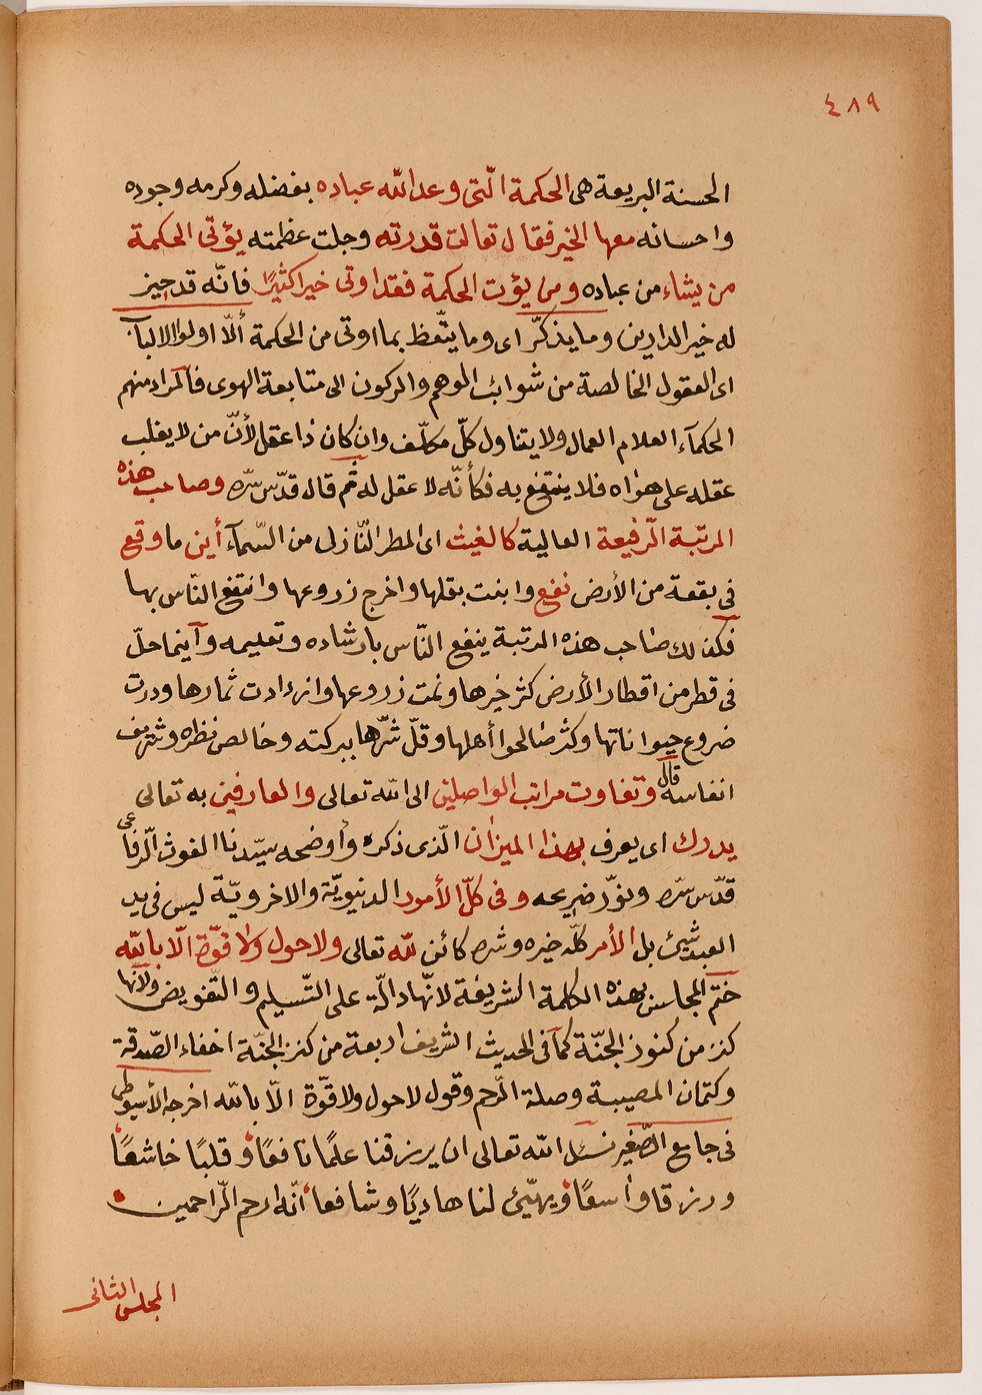 ٤٨٩
الحسنة البريعة هى الحكمة الّتى وعد اللّه عباده بفضله وكرمه وجوده
واحسانه معها الخير فقال تعالت قدرته وجلت عظمته يؤتى الحكمة
من يشاء من عباده ومن يؤت الحكمة فقد اوتى خيرا كثيرًا فانّه قد حيز
له خير الدارين وما يذكّر اى وما يتّعظ بما اوتى من الحكمة ألّا اولوا الالباب
اى العقول الخالصة من شوائب الوهم والركون الى متابعة الهوى فالمراد منهم
الحكمآء العلام العمال ولا يتناول كلّ مكلّف وان كان ذا عقل لأنّ من لا يغلب
عقله على هواه فلا ينتفع به فكأنّه لا عقل له ثم قال قدّس سرّه وصاحب هذه
المرتبة الرّفيعة العالية كالغيث اى المطر النّازل من السّمآء أين ما وقع
فى بقعة من الأرض نفع وابنت بقلها واخرج زروعها وانتفع النّاس بها
فكذلك صاحب هذه المرتبة ينفع النّاس بارشاده وتعليمه وآينما حلّ
فى قطر من اقطار الأرض كثر خيرها ونمت زروعها وازدادت ثمارها ودرت
ضروع حيواناتها وكثر صالحوا أهلها وقلّ شرّها ببركته وخالص نظره وشريف
انفاسه قال وتفاوت مراتب الواصلين الى اللّه تعالى والعارفين به تعالى
يدرك اى يعرف بهذا الميزان الّذى ذكره وأوضحه سيّدنا الغوث الرّفاعى
قدّس سرّه ونوّر ضريحه وفى كلّ الأمور الدنيويّة والاخرويّة ليس فى يد
العبد شئ بل الأمر كلّه خيره وشره كائن للّه تعالى ولا حول ولا قوّة الّا باللّه
ختم المجاسن بهذه الكلمة الشريفة لانّها دالّة على التّسليم والتّفويض ولانّها
كنز من كنوز الجنّة كمآ فى الحديث الشريف اربعة من كنز الجنّة اخفاء الصّدقة
وكتمان المصيبة وصلة الرّحم وقول لا حول ولا قوّة الّا باللّه اخرجه الأسيوطى
فى جامع الصّغير نسئل اللّه تعالى ان يرزقنا علمًا نافعًا وقلبًا خاشعًا
ورزقا واسعًا ويهيّئ لنا هاديًا وشافعا انّه ارحم الرّاحمين
المجلس الثانى